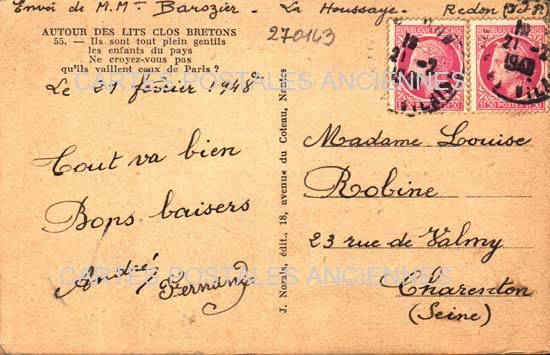 Envoi de M. Mme Barozier - La Houssaye - Redon
AUTOUR DES LITS CLOS BRETONS
55. — Ils sont tout plein gentils
les enfants du pays
Ne croyez-vous pas
qu'ils vaillent ceux de Paris ?
270163
Le 21 février 1948
Tout va bien
Bons baisers
André
Fernand
J. Nozais, édit., 18, avenue du Coteau, Nantes
Madame Louise
Robine
23 rue de Valmy
Charenton
(Seine)
CARTES POSTALES ANCIENNES
CARTES POSTALES ANCIENNES